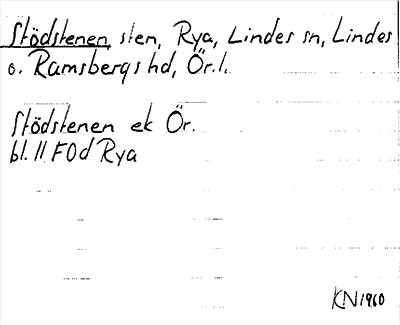 Stödstenen, sten, Rya, Lindes sn, Lindes
o. Ramsbergs hd, Ör. l.
Stödstenen ek Ör.
bl. 11 FOd Rya
KN 1960